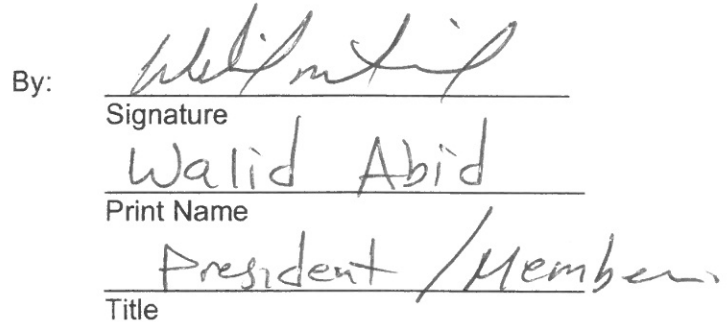 By:
Signature
Walid Abid
Print Name
President / Member
Title